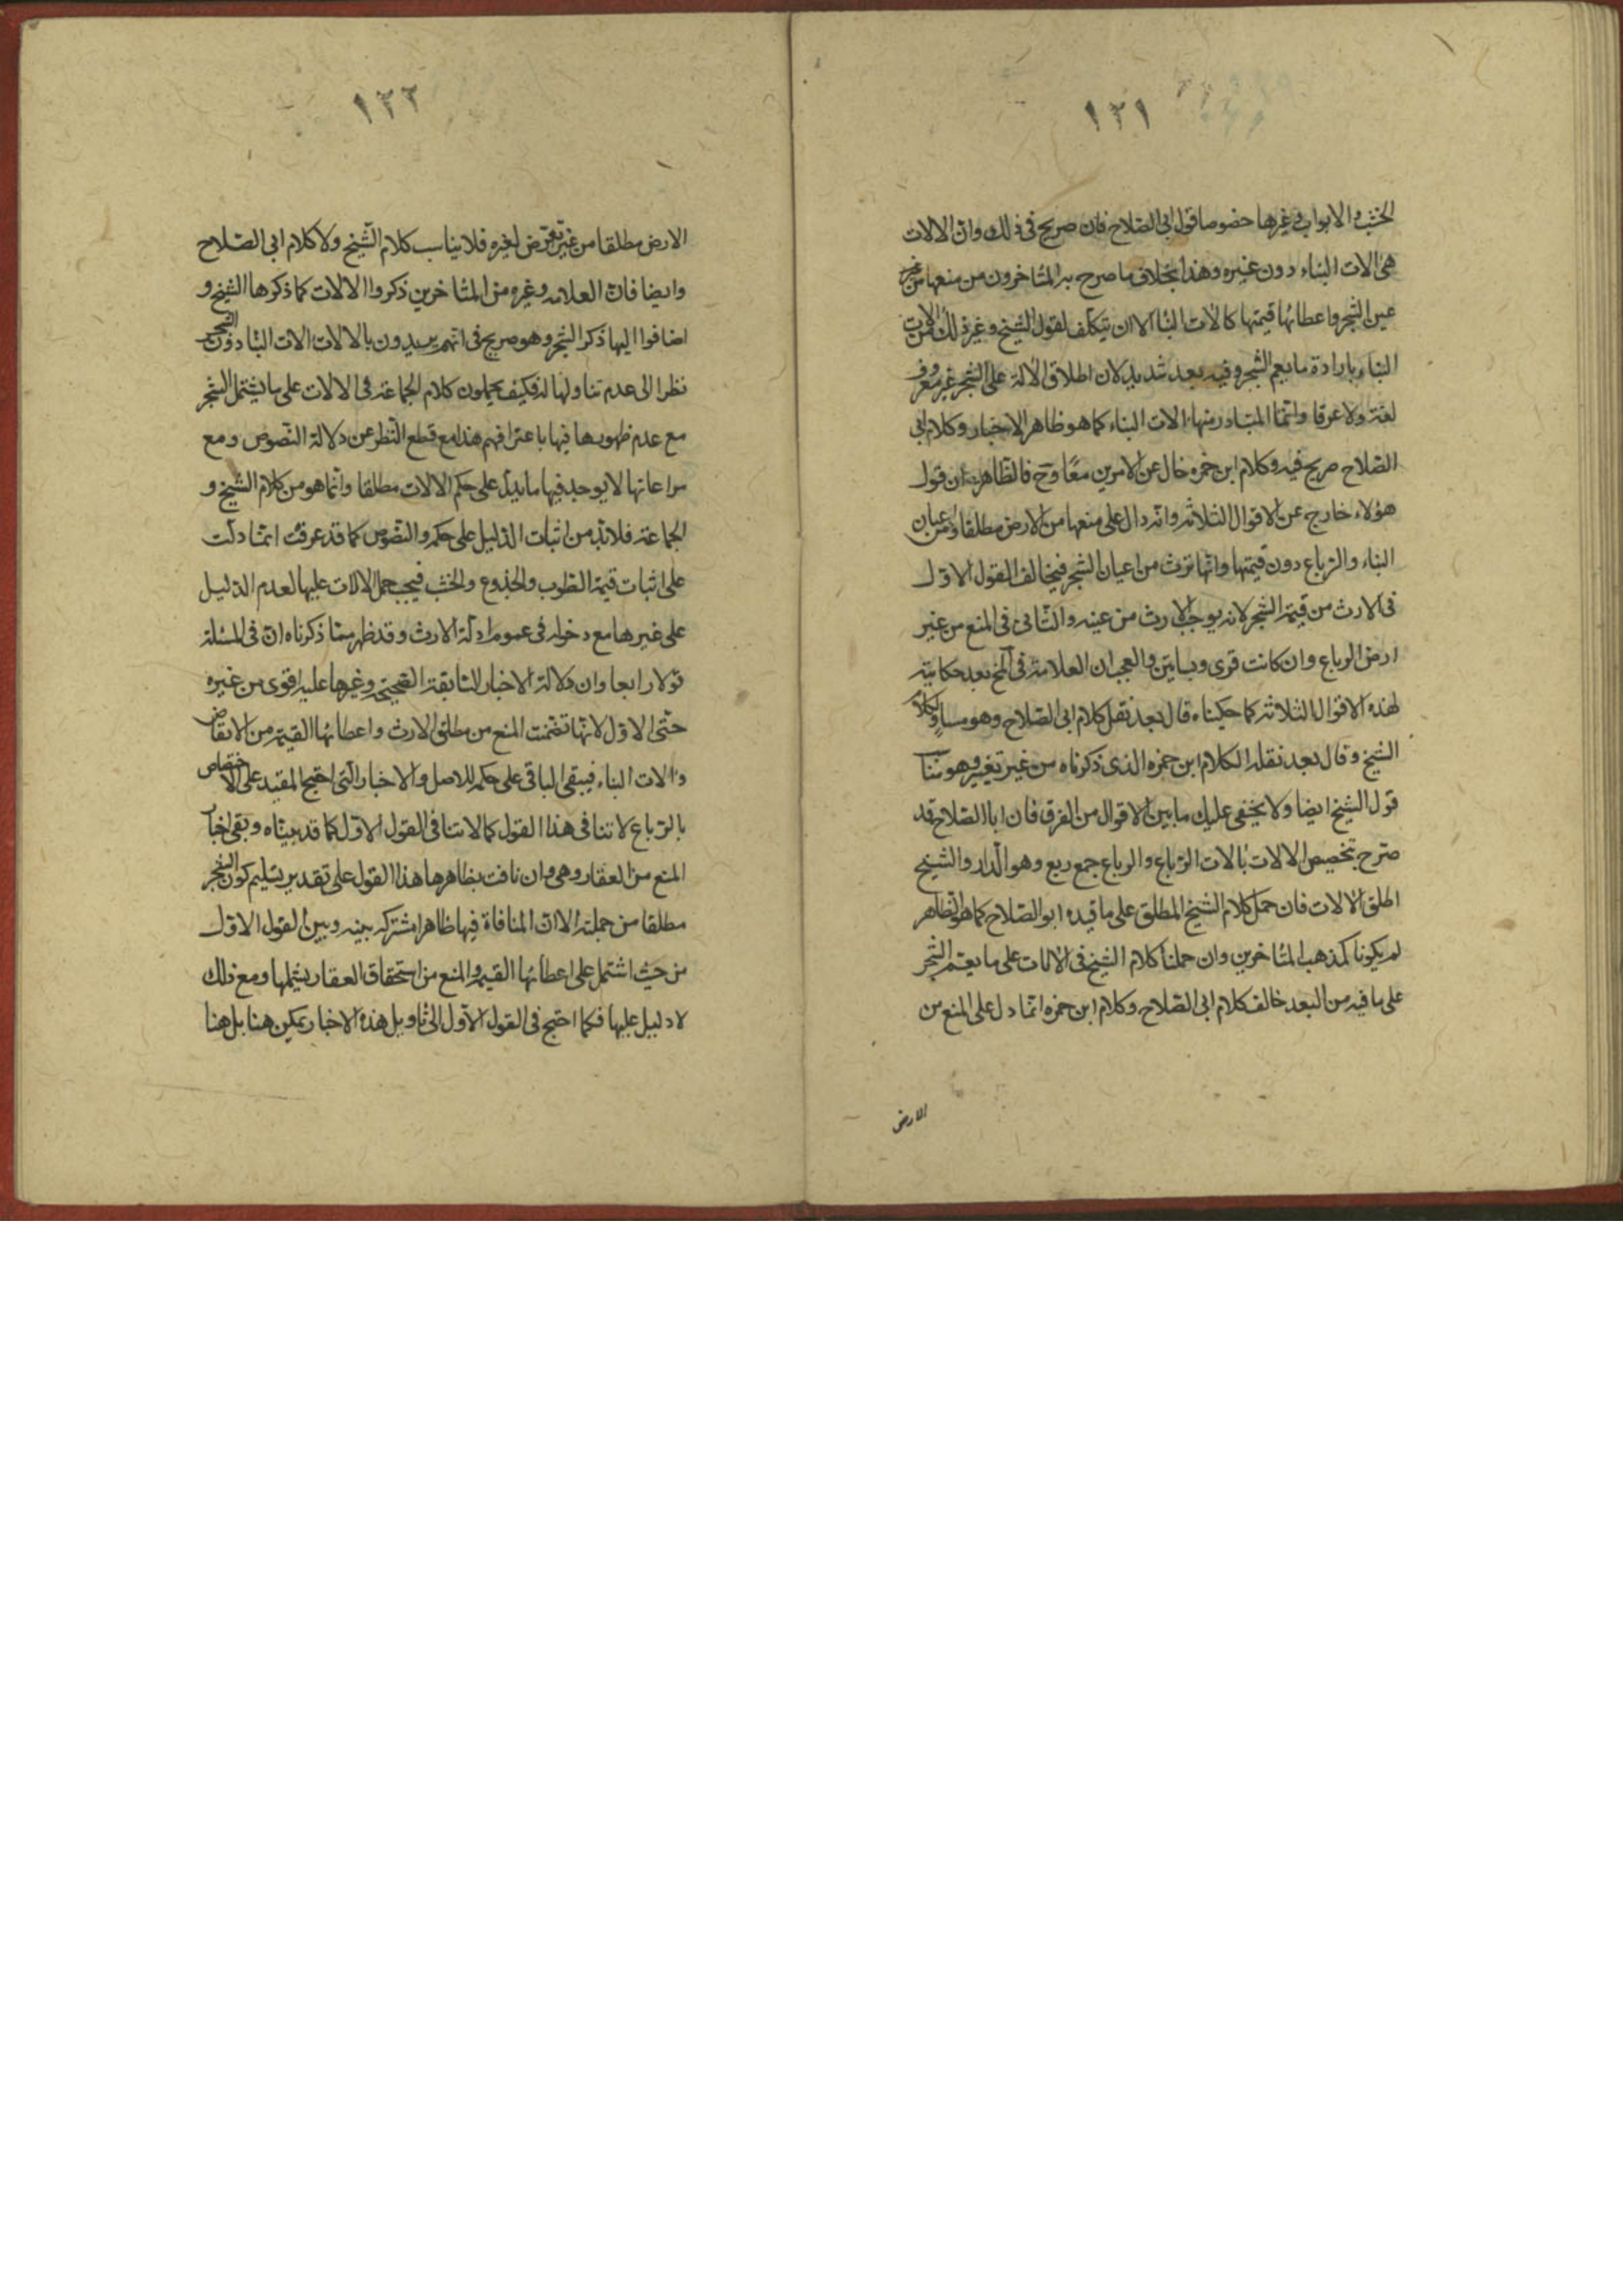 ١٢١
الخشب والابواب وغيرها خصوصا قول ابى الصّلاح فان صريح فى ذلك وانّ الالات
هى الات البناء دون غيره وهذا بخلاف ما صرح به المتاخرون من منعها من غير
عين الشجر واعطائها قيمتها كالات البناء الا ان يتكلف لقول الشيخ وغيره ذلك من الات
البناء بارادة ما يعم الشجر وفيه بعد شديد لان اطلاق الالة على الشجر غير معروف
لغة ولا عرفا وانّما المتبادر منها الات البناء كما هو ظاهر الاخبار وكلام ابى
الصّلاح صريح فيه وكلام ابن حمزه خال عن الامرين معًا وح فالظاهر ان قول
هؤلاء خارج عن الاقوال الثلاثه وانه دال على منعها من الارض مطلقا ومن اعيان
البناء والرّباع دون قيمتها وانّها ترث من اعيان الشجر فيخالف القول الاوّل
فى الارث من قيمة الشجر لانه يوجب الارث من عينه والثّانى فى المنع من غير
ارض الرباع وان كانت قرى وبساتين والعجب ان العلامة فى المخ بعد حكايته
لهذه الاقوال الثلاثه كما حكيناه قال بعد نقل كلام ابى الصّلاح وهو مساو لكلام
الشيخ وقال بعد نقله لكلام ابن حمزه الذى ذكرناه من غير تغيير وهو يناسب
قول الشيخ ايضا ولا يخفى عليك ما بين الاقوال من الفرق فان ابا الصّلاح قد
صرّح بتخصيص الالات بالات الرّباع والرباع جمع ربع وهو الدّار والشيخ
اطلق الالات فان حمل كلام الشيخ المطلق على ما قيده ابو الصّلاح كما هو الظاهر
لم يكونا كمذهب المتاخرين وان حملنا كلام الشيخ فى الالات على ما يعم الشّجر
على ما فيه من البعد خالف كلام ابى الصّلاح وكلام ابن حمزه انّما دل على المنع من
الارض
١٢٢
الارض مطلقا من غير تعرّض لغيره فلا يناسب كلام الشّيخ ولا كلام ابى الصّلاح
وايضا فانّ العلامه وغيره من المتاخرين ذكروا الالات كما ذكرها الشيخ و
اضافوا اليها ذكر الشجر وهو صريح فى انّهم يريدون بالالات الات البناء دون الشجر
نظرا الى عدم تناولها له فكيف يحملون كلام الجماعة فى الالات على ما يشتمل الشجر
مع عدم ظهورها فيها باعترافهم هذا مع قطع النّظر عن دلالة النّصوص ومع
مراعاتها لا يوجد فيها ما يدلّ على حكم الالات مطلقا وانّما هو من كلام الشّيخ و
الجماعة فلا بدّ من اثبات الدّليل على حكمه والنّصوص كما قد عرفت انّما دلّت
على اثبات قيمة الطوب والجذوع والخشب فيجب حمل الالات عليها لعدم الدّليل
على غيرها مع دخوله فى عموم ادلّة الارث وقد ظهر ممّا ذكرناه انّ فى المسئلة
قولا رابعا وان دلالة الاخبار السّابقة الصّحيحة وغيرها عليه اقوى من غيره
حتّى الاوّل لانّها تضمّنت المنع من مطلق الارث واعطائها القيمة من الانقاض
والات البناء فيبقى الباقى على حكم الاصل والاخبار الّتى احتج المفيد على الاختصاص
بالرّباع لا تنافى هذا القول كما لا تنافى القول الاوّل كما قد بيّناه وبقى اخبار
المنع من العقار وهى وان نافت بظاهرها هذا القول على تقدير تسليم كون الشجر
مطلقا من جملته الا انّ المنافاة فيها ظاهرا مشتركه بينه وبين القول الاوّل
من حيث اشتمل على اعطائها القيمة والمنع من استحقاق العقار يشملها ومع ذلك
لا دليل عليها فكما احتج فى القول الاوّل الى تاويل هذه الاخبار يمكن هنا بل هنا